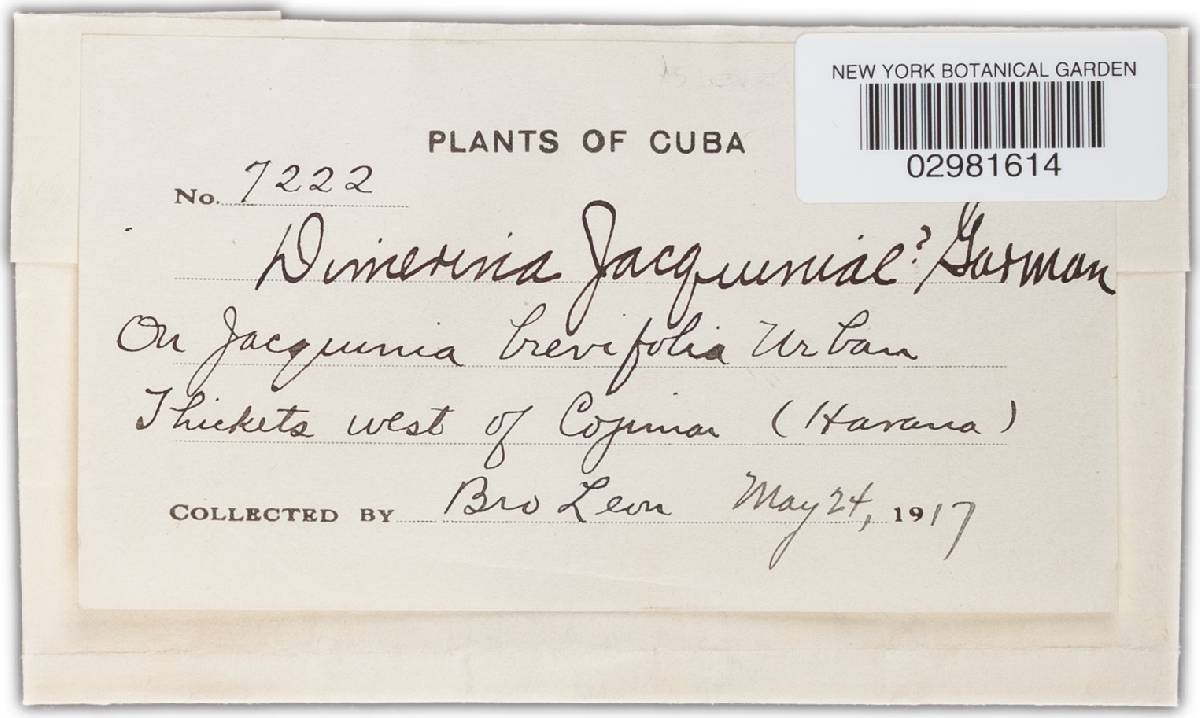 NEW YORK BOTANICAL GARDEN
02981614
PLANTS OF CUBA
No. 7222
Dimerina Jacquiniae? Garman
On Jacquinia brevifolia Urban
Thickets west of Cojimar (Havana)
COLLECTED BY Bro Leon May 24, 1917